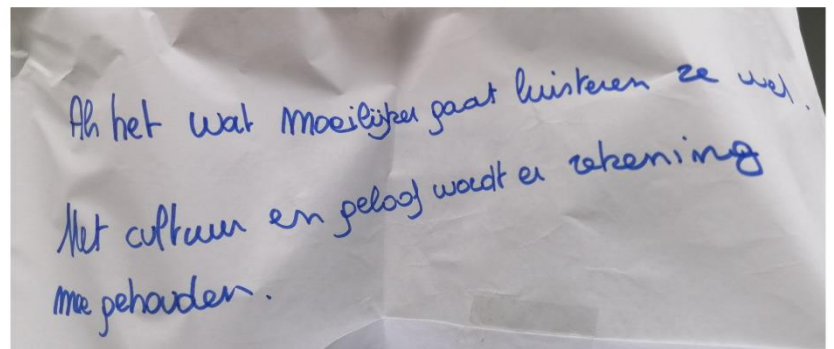 Als het wat moeilijker gaat luisteren ze wel.
Met cultuur en geloof wordt er rekening
mee gehouden.